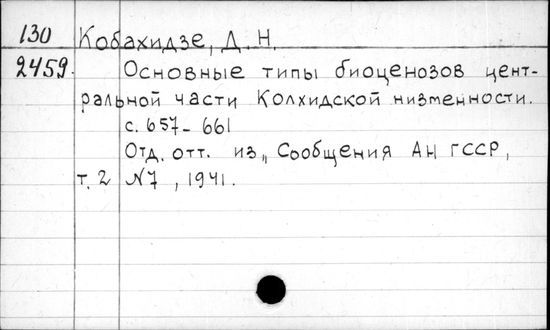 130 Кобахидзе, Д. Н.
2459. Основные типы биоценозов цент-
ральной части Колхидской низменности.
с. 657-661
Отд. отт. из „Сообщения АН ГССР,
т. 2 №7, 1941.